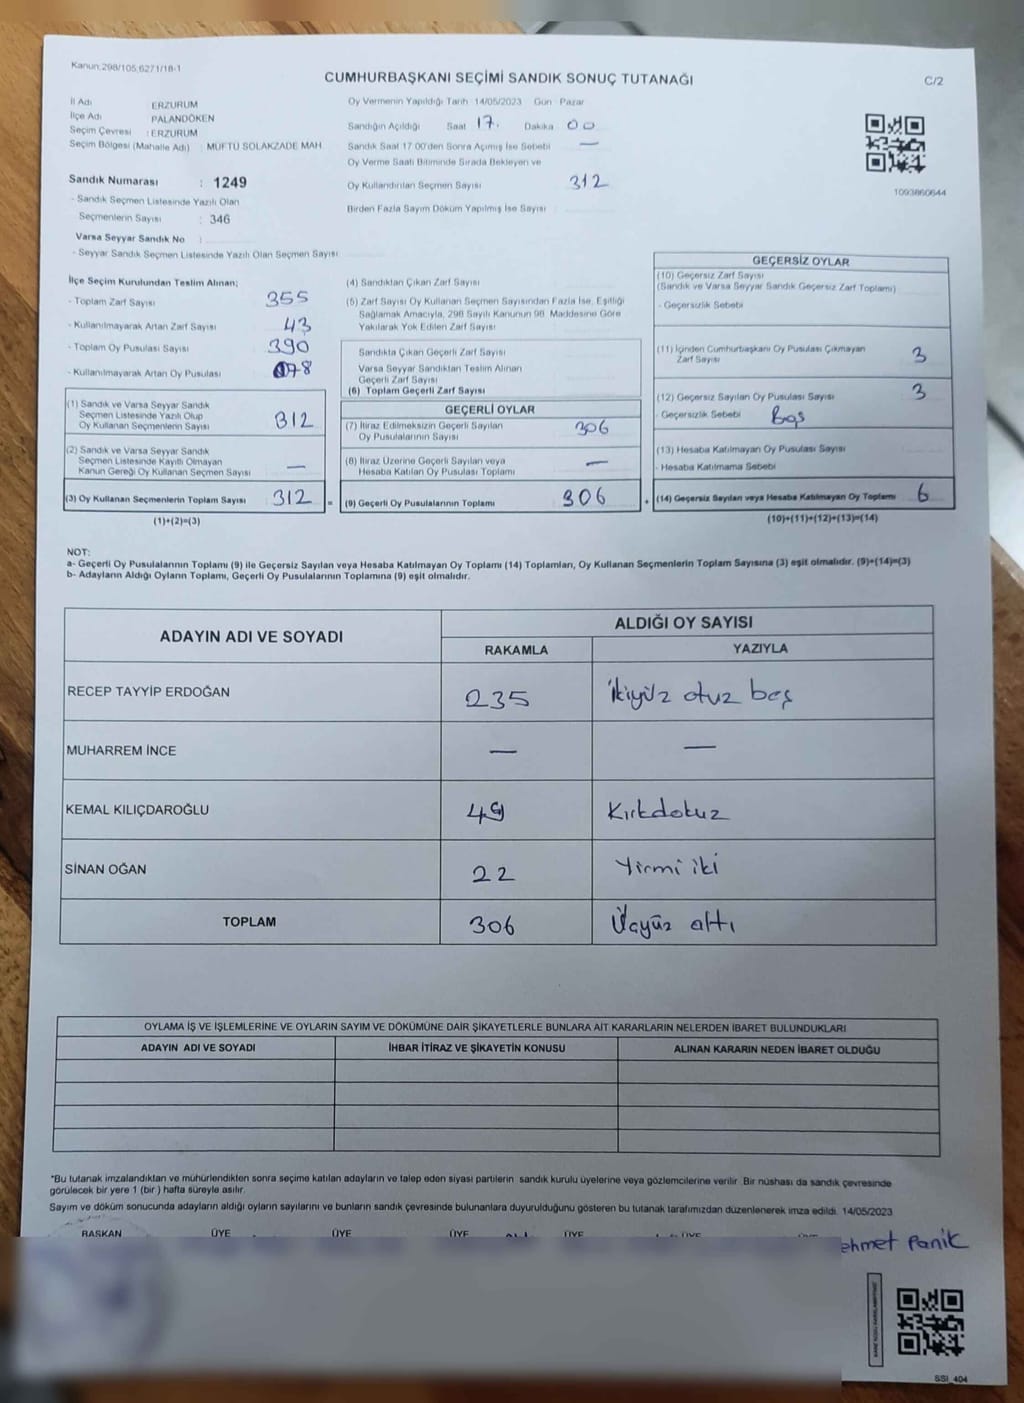 Kanun:298/105,6271/18-1
CUMHURBAŞKANI SEÇİMİ SANDIK SONUÇ TUTANAĞI
C/2
İl Adı ERZURUM
İlçe Adı PALANDÖKEN
Seçim Çevresi : ERZURUM
Seçim Bölgesi (Mahalle Adı) : MÜFTÜ SOLAKZADE MAH.
Oy Vermenin Yapıldığı Tarih :14/05/2023 Gün : Pazar
Sandığın Açıldığı Saat 17. Dakika 00
Sandık Saat 17:00'den Sonra Açılmış İse Sebebi —
Oy Verme Saati Bitiminde Sırada Bekleyen ve
Oy Kullandırılan Seçmen Sayısı 312
Birden Fazla Sayım Döküm Yapılmış İse Sayısı
1093860644
Sandık Numarası : 1249
- Sandık Seçmen Listesinde Yazılı Olan
Seçmenlerin Sayısı : 346
Varsa Seyyar Sandık No :
- Seyyar Sandık Seçmen Listesinde Yazılı Olan Seçmen Sayısı
İlçe Seçim Kurulundan Teslim Alınan;
- Toplam Zarf Sayısı 355
- Kullanılmayarak Artan Zarf Sayısı 43
- Toplam Oy Pusulası Sayısı 390
- Kullanılmayarak Artan Oy Pusulası 78
(1) Sandık ve Varsa Seyyar Sandık
Seçmen Listesinde Yazılı Olup
Oy Kullanan Seçmenlerin Sayısı 312
(2) Sandık ve Varsa Seyyar Sandık
Seçmen Listesinde Kayıtlı Olmayan
Kanun Gereği Oy Kullanan Seçmen Sayısı —
(3) Oy Kullanan Seçmenlerin Toplam Sayısı 312 =
(1)+(2)=(3)
(4) Sandıktan Çıkan Zarf Sayısı
(5) Zarf Sayısı Oy Kullanan Seçmen Sayısından Fazla İse, Eşitliği
Sağlamak Amacıyla, 298 Sayılı Kanunun 98. Maddesine Göre
Yakılarak Yok Edilen Zarf Sayısı
Sandıkta Çıkan Geçerli Zarf Sayısı
Varsa Seyyar Sandıktan Teslim Alınan
Geçerli Zarf Sayısı
(6) Toplam Geçerli Zarf Sayısı
GEÇERLİ OYLAR
(7) İtiraz Edilmeksizin Geçerli Sayılan
Oy Pusulalarının Sayısı 306
(8) İtiraz Üzerine Geçerli Sayılan veya
Hesaba Katılan Oy Pusulası Toplamı —
(9) Geçerli Oy Pusulalarının Toplamı 306 +
GEÇERSİZ OYLAR
(10) Geçersiz Zarf Sayısı
(Sandık ve Varsa Seyyar Sandık Geçersiz Zarf Toplamı)
- Geçersizlik Sebebi
(11) İçinden Cumhurbaşkanı Oy Pusulası Çıkmayan
Zarf Sayısı 3
(12) Geçersiz Sayılan Oy Pusulası Sayısı 3
- Geçersizlik Sebebi Boş
(13) Hesaba Katılmayan Oy Pusulası Sayısı
- Hesaba Katılmama Sebebi
(14) Geçersiz Sayılan veya Hesaba Katılmayan Oy Toplamı 6
(10)+(11)+(12)+(13)=(14)
NOT:
a- Geçerli Oy Pusulalarının Toplamı (9) ile Geçersiz Sayılan veya Hesaba Katılmayan Oy Toplamı (14) Toplamları, Oy Kullanan Seçmenlerin Toplam Sayısına (3) eşit olmalıdır. (9)+(14)=(3)
b- Adayların Aldığı Oyların Toplamı, Geçerli Oy Pusulalarının Toplamına (9) eşit olmalıdır.
ADAYIN ADI VE SOYADI
ALDIĞI OY SAYISI
RAKAMLA YAZIYLA
RECEP TAYYİP ERDOĞAN 235 ikiyüz otuz beş
MUHARREM İNCE — —
KEMAL KILIÇDAROĞLU 49 Kırkdokuz
SİNAN OĞAN 22 Yirmi iki
TOPLAM 306 Üçyüz altı
OYLAMA İŞ VE İŞLEMLERİNE VE OYLARIN SAYIM VE DÖKÜMÜNE DAİR ŞİKAYETLERLE BUNLARA AİT KARARLARIN NELERDEN İBARET BULUNDUKLARI
ADAYIN ADI VE SOYADI İHBAR İTİRAZ VE ŞİKAYETİN KONUSU ALINAN KARARIN NEDEN İBARET OLDUĞU
*Bu tutanak imzalandıktan ve mühürlendikten sonra seçime katılan adayların ve talep eden siyasi partilerin sandık kurulu üyelerine veya gözlemcilerine verilir. Bir nüshası da sandık çevresinde
görülecek bir yere 1 (bir) hafta süreyle asılır.
Sayım ve döküm sonucunda adayların aldığı oyların sayılarını ve bunların sandık çevresinde bulunanlara duyurulduğunu gösteren bu tutanak tarafımızdan düzenlenerek imza edildi. 14/05/2023
BAŞKAN ÜYE ÜYE ÜYE ÜYE ÜYE
ehmet Panik
SSI_404